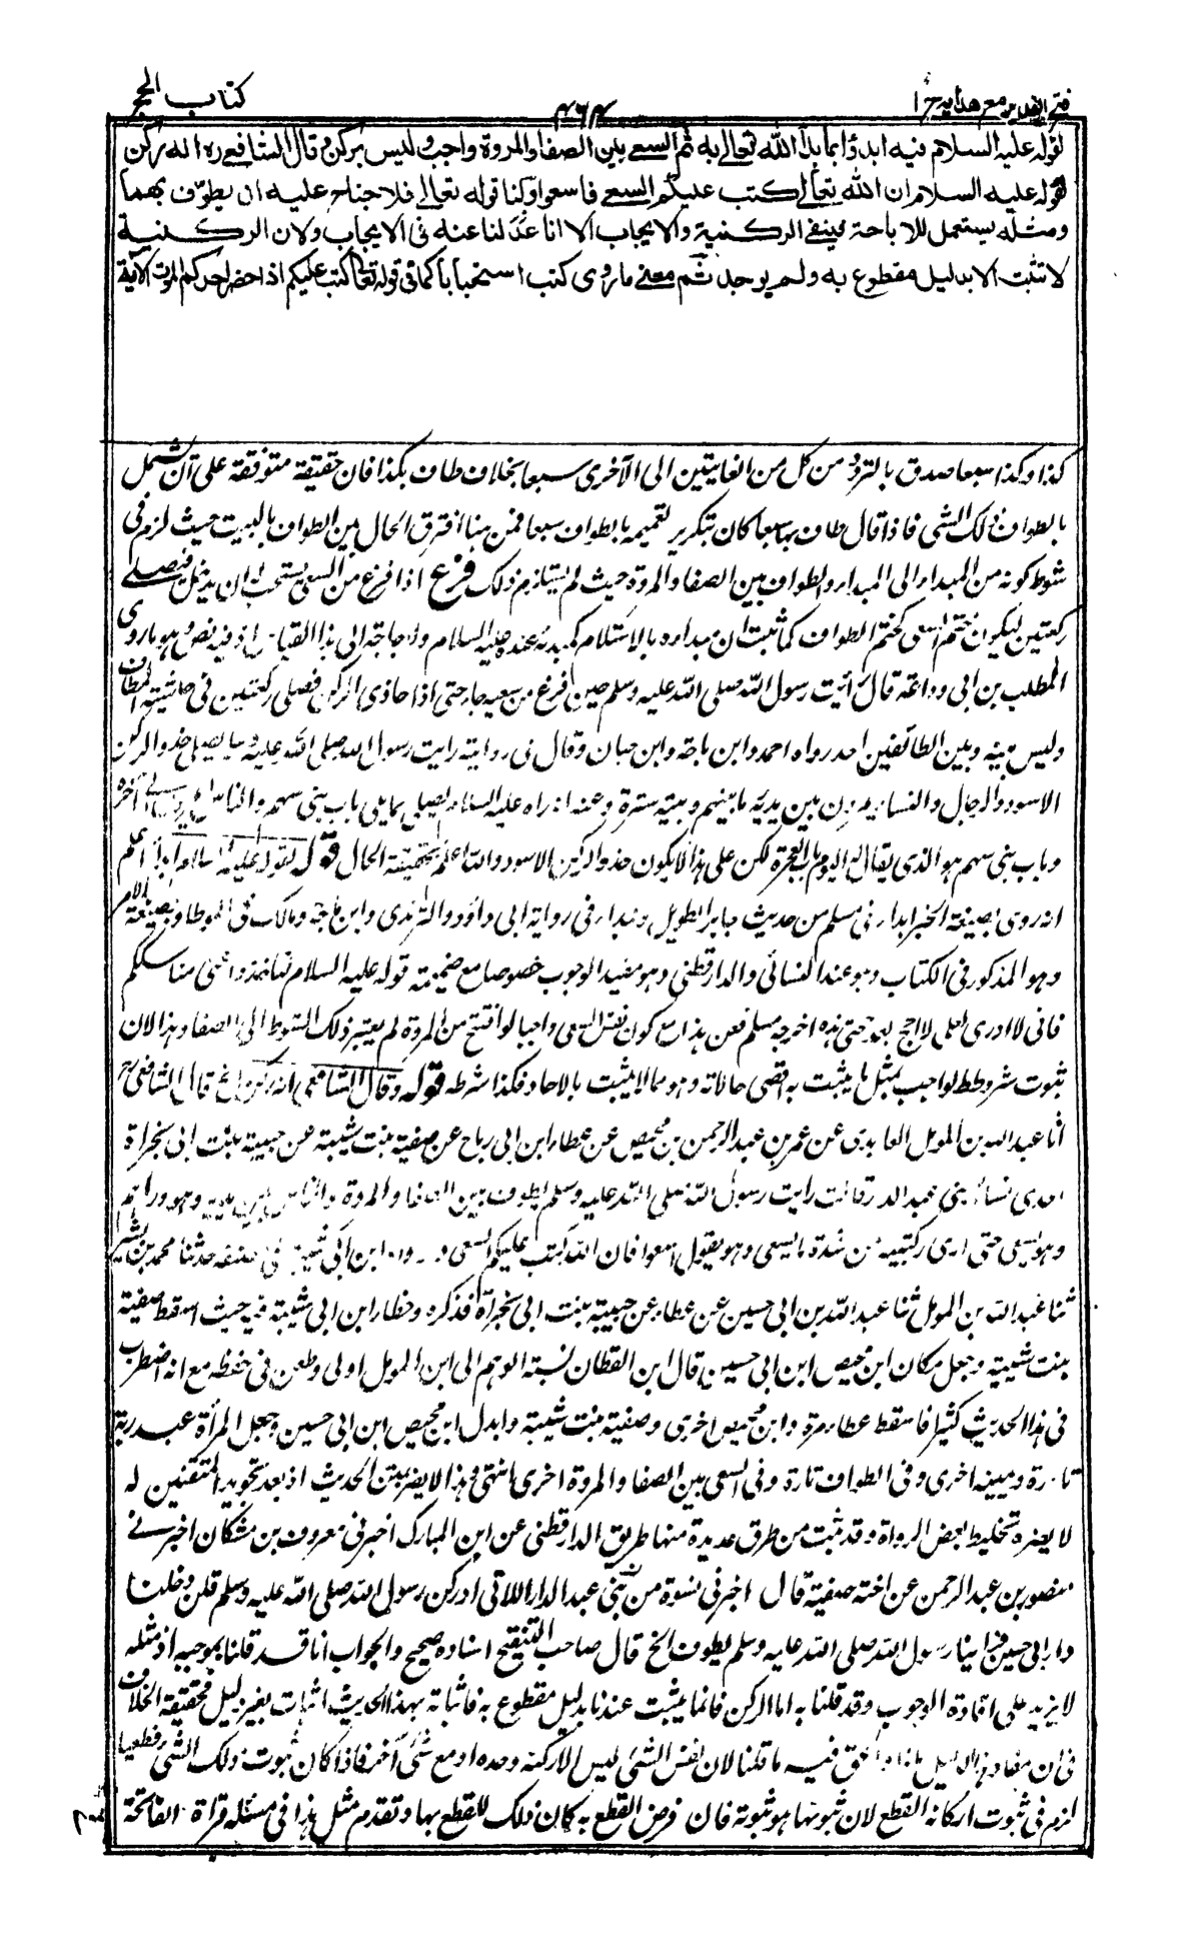 فتح القدير مع هدايه ج ١
٤٦٤
كتاب الحج
لقوله عليه السلام فيه ابدؤا بما بدأ الله تعالى به ثم السعي بين الصفا والمروة واجب وليس بركن وقال الشافعي ره انه ركن
لقوله عليه السلام ان الله تعالى كتب عليكم السعي فاسعوا ولنا قوله تعالى فلا جناح عليه ان يطوف بهما
ومثله يستعمل للاباحة فينفي الركنية والايجاب الا انا عدلنا عنه في الايجاب ولان الركنية
لا تثبت الا بدليل مقطوع به ولم يوجد ثم معنى ما روى كتب استحبابا كما في قوله تعالى كتب عليكم اذا حضر احدكم الموت الآية
كذا وكذا سبعا صدق بالتردد من كل من الغايتين الى الآخرى سبعا بخلاف طاف بكذا فان حقيقته متوقفة على ان تشمل
بالطواف ذلك الشئ فاذا قال طاف بها سبعا كان بتكرير تعميمه بالطواف سبعا فمن هنا افترق الحال بين الطواف بالبيت حيث لزم في
شوط كونه من المبدا الى المبدا والطواف بين الصفا والمروة حيث لم يستلزم ذلك فرع اذا فرغ من السعى يستحب له ان يدخل فيصلى
ركعتين ليكون ختم السعى كختم الطواف كما ثبت ان مبداه بالاستلام كمبدئه عنه عليه السلام ولا حاجة الى هذا القياس اذ فيه نص وهو ما روى
المطلب بن ابى وداعة قال رأيت رسول الله صلى الله عليه وسلم حين فرغ من سعيه جاء حتى اذا حاذى الركن فصلى ركعتين في حاشية المطاف
وليس بينه وبين الطائفين احد رواه احمد وابن ماجة وابن حبان وقال في رواية رايت رسول الله صلى الله عليه وسلم يصلى حذو الركن
الاسود والرجال والنساء يمرون بين يديه ما بينهم وبينه سترة وعنه انه راه عليه السلام يصلى مما يلى باب بنى سهم والناس يمرون الى آخره
وباب بنى سهم هو الذى يقال له اليوم باب العمرة لكن على هذا لا يكون حذو الركن الاسود والله اعلم بحقيقة الحال قوله لقوله عليه السلام ابدؤا اعلم
انه روى بصيغة الخبر ابدأ في مسلم من حديث جابر الطويل ونبدأ في رواية ابى داؤد والترمذى وابن ماجة ومالك في الموطا وبصيغة الامر
وهو المذكور في الكتاب وهو عند النسائى والدارقطنى وهو مفيد الوجوب خصوصا مع ضميمة قوله عليه السلام لتاخذوا عنى مناسككم
فانى لا ادرى لعلى لا احج بعد حجتى هذه اخرجه مسلم فعن هذا مع كون نفس السعى واجبا لو افتتح من المروة لم يعتبر ذلك الشوط الى الصفا وهذا لان
ثبوت شرط الواجب بمثل ما يثبت به اقصى حالاته وهو مما لا يثبت بالاحاد فكذا شرطه قوله وقال الشافعى انه ركن الخ قال الشافعى رح
انا عبد الله بن المومل العابدى عن عمر بن عبد الرحمن بن محيص عن عطاء ابن ابى رباح عن صفية بنت شيبة عن حبيبة بنت ابى تجراة
احدى نساء بنى عبد الدار قالت رايت رسول الله صلى الله عليه وسلم يطوف بين الصفا والمروة والناس بين يديه وهو وراءهم
وهو يسعى حتى ارى ركبتيه من شدة ما يسعى وهو يقول اسعوا فان الله كتب عليكم السعى ورواه ابن ابى شيبة في مصنفه حدثنا محمد بن بشير
ثنا عبد الله بن المومل ثنا عبد الله بن ابى حسين عن عطاء عن حبيبة بنت ابى تجراة فذكره وخطاء ابن ابى شيبة فيه حيث اسقط صفية
بنت شيبة وجعل مكان ابن محيص ابن ابى حسين قال ابن القطان نسبة الوهم الى ابن المومل اولى وطعن في حفظه مع انه اضطرب
في هذا الحديث كثيرا فاسقط عطاء مرة وابن محيص اخرى وصفية بنت شيبة وابدل ابن محيص ابن ابى حسين وجعل المرأة عبدرية
تارة ويمنية اخرى وفي الطواف تارة وفي السعى بين الصفا والمروة اخرى انتهى وهذا لا يضر بمتن الحديث اذ بعد تجويد المتقنين له
لا يضره تخليط بعض الرواة وقد ثبت من طرق عديدة منها طريق الدارقطنى عن ابن المبارك اخبرنى معروف بن مشكان اخبرنى
منصور بن عبد الرحمن عن اخته صفية قال اخبرنى نسوة من بنى عبد الدار اللاتى ادركن رسول الله صلى الله عليه وسلم قلن دخلنا
دار ابى حسين فراينا رسول الله صلى الله عليه وسلم يطوف الخ قال صاحب التنقيح اسناده صحيح والجواب انا قد قلنا بموجبه اذ مثله
لا يزيد على افادة الوجوب وقد قلنا به اما الركن فانما يثبت عندنا بدليل مقطوع به فاثباته بهذا الحديث اثبات بغير دليل فحقيقة الخلاف
في ان مفاد هذا الدليل ماذا والحق فيه ما قلنا لان نفس الشئ ليس الا ركنه وحده او مع شئ آخر فاذا كان ثبوت ذلك الشئ قطعيا
لزم في ثبوت اركانه القطع لان ثبوتها هو ثبوته فان فرض القطع به كان ذلك للقطع بها وتقدم مثل هذا في مسئلة قراة الفاتحة